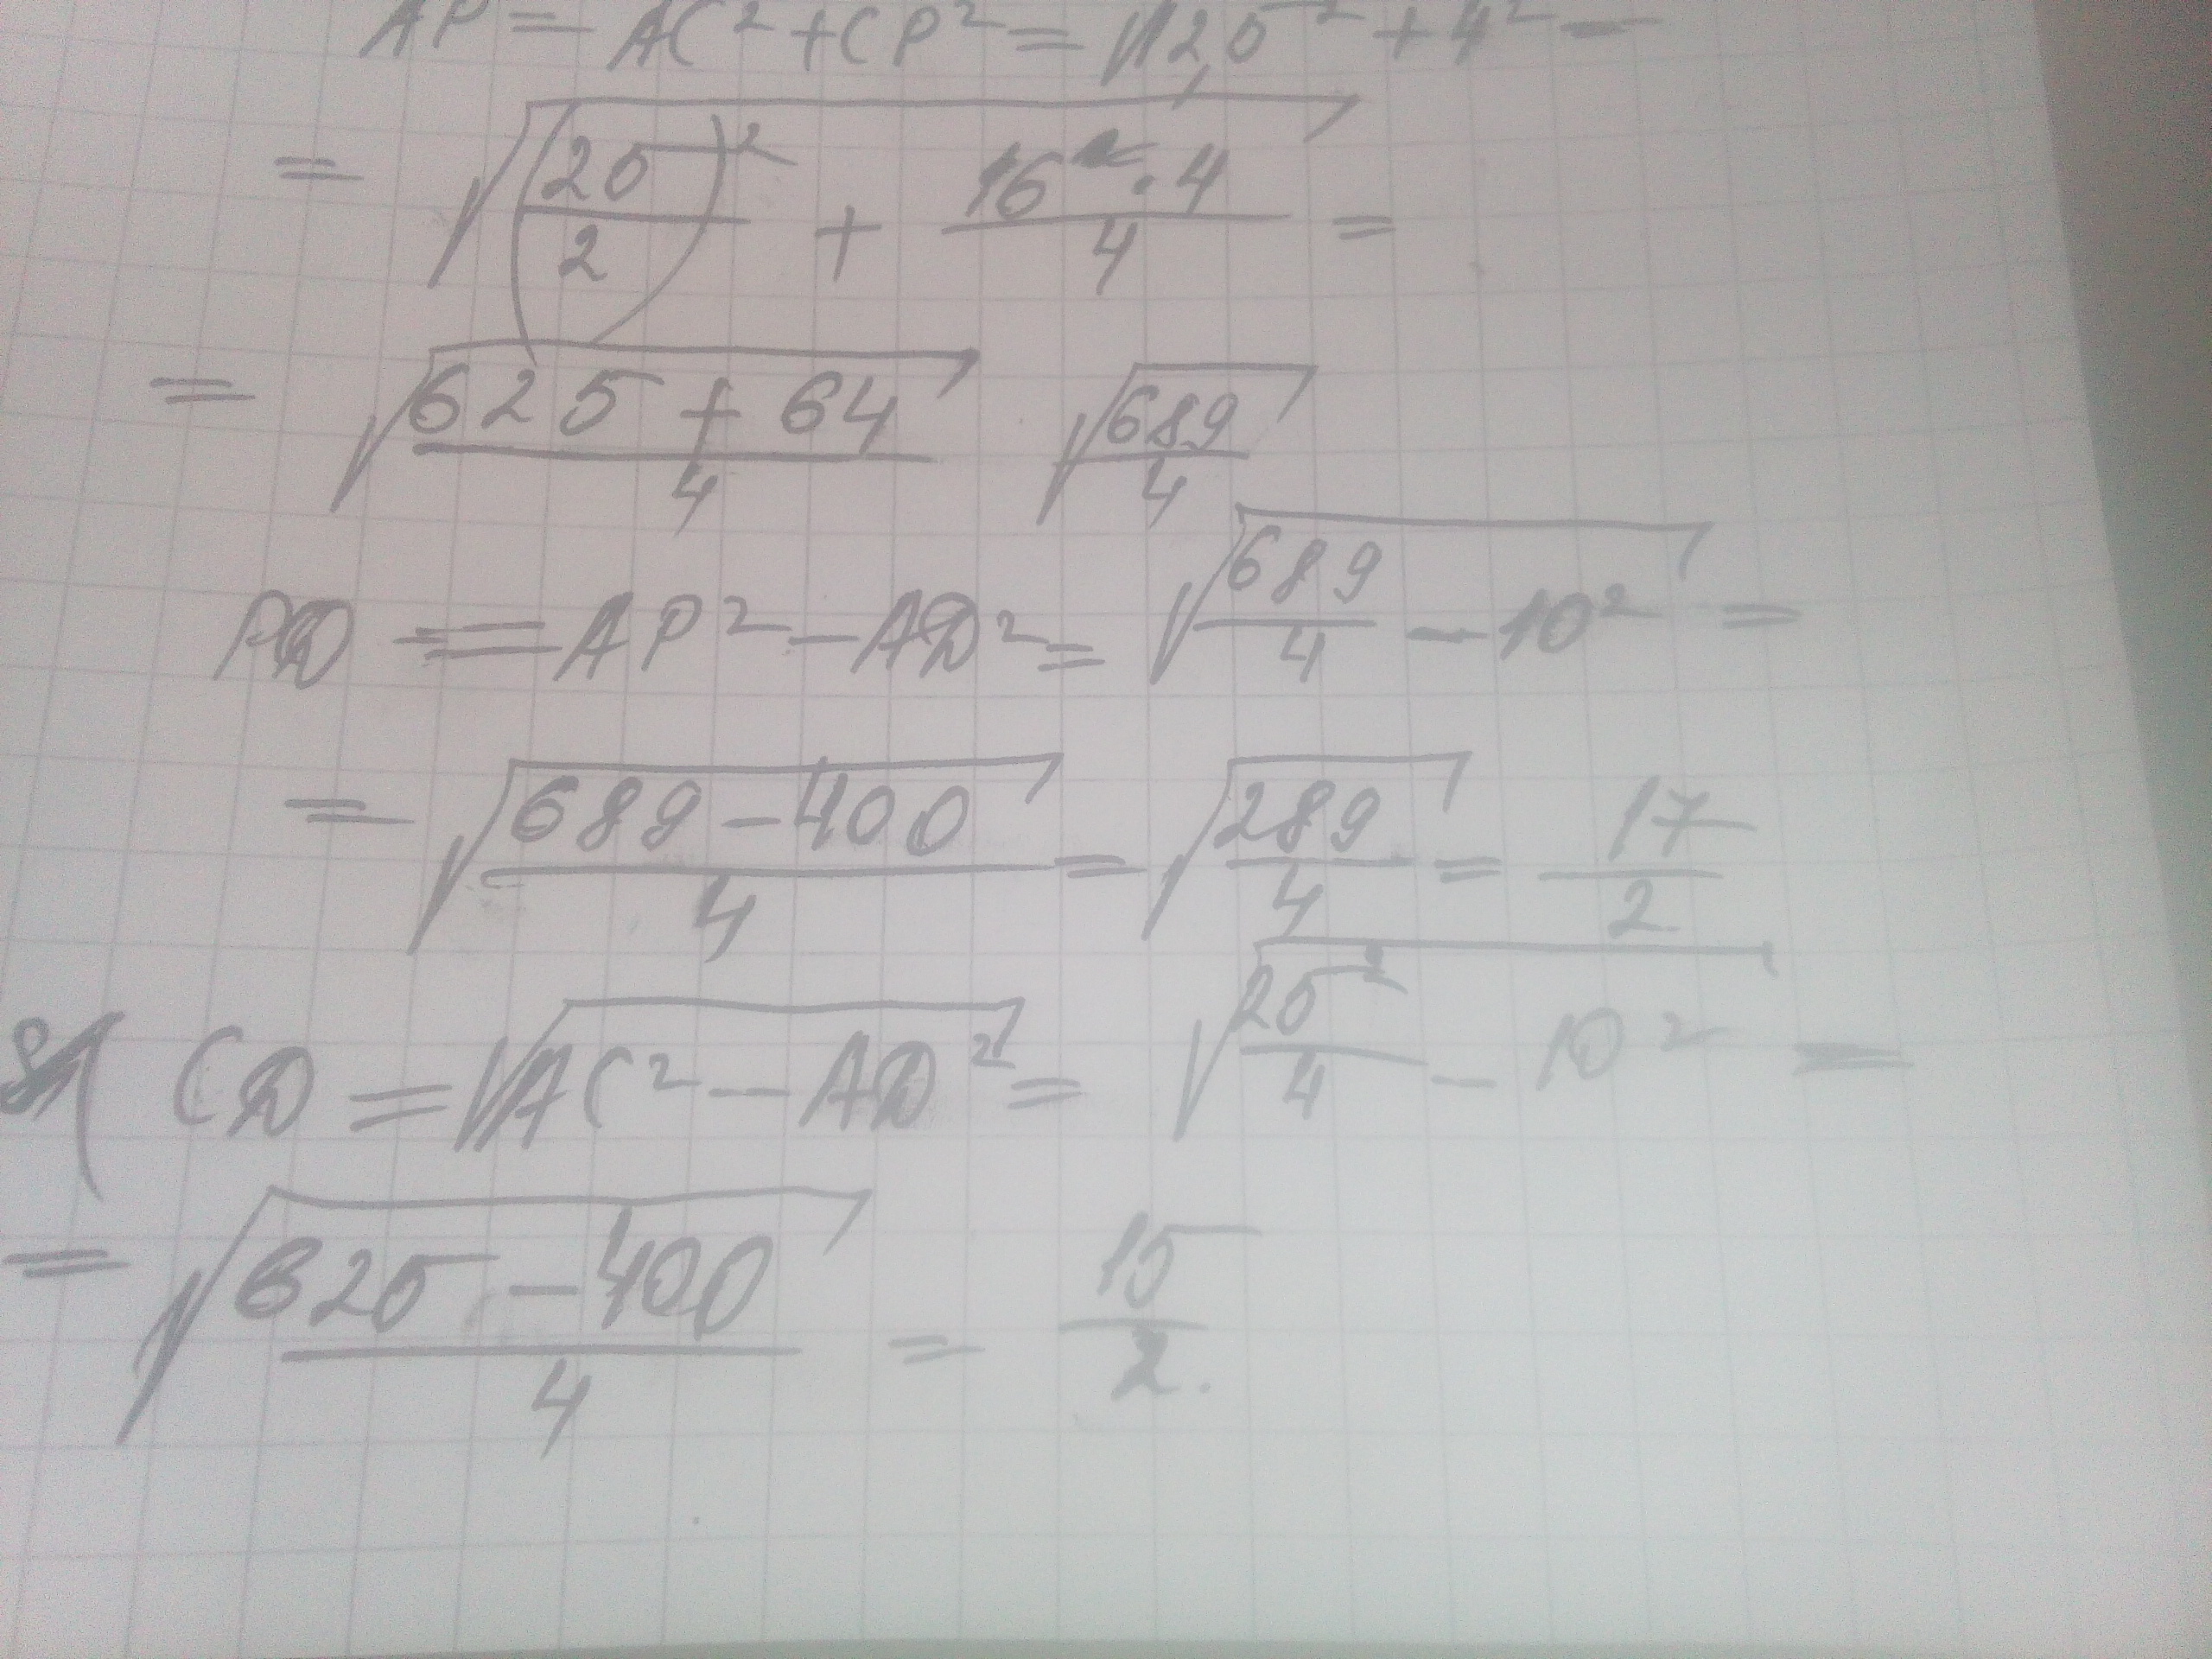 AP = AC² + CP² = √12,5² + 4² =
= √(25/2)² + 16·4/4 =
= √625 + 64/4 √689/4
PD == AP² - AD² = √689/4 - 10² =
= √689 - 400/4 = √289/4 = 17/2
CD = √AC² - AD² = √25²/4 - 10² =
= √625 - 400/4 = 15/2.